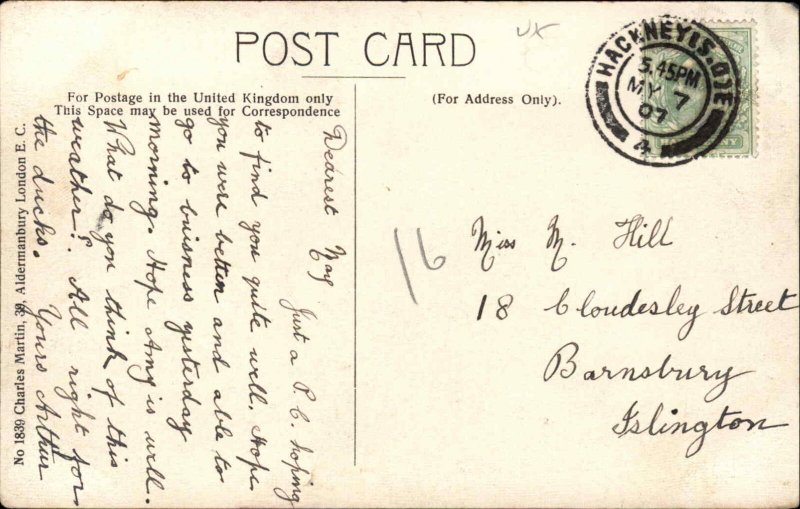 POST CARD
For Postage in the United Kingdom only
This Space may be used for Correspondence
(For Address Only).
HACKNEY B.S.O E
5.45PM
MY 7
07
4
ux
16
Dearest May
Just a P.C. hoping
to find you quite well. Hope
you were better and able to
go to buisness yesterday
morning. Hope Amy is well.
What do you think of this
weather? All right for
the ducks. Yours Arthur
Miss M. Hill
18 Cloudesley Street
Barnsbury
Islington
No 1839 Charles Martin, 39, Aldermanbury London E. C.